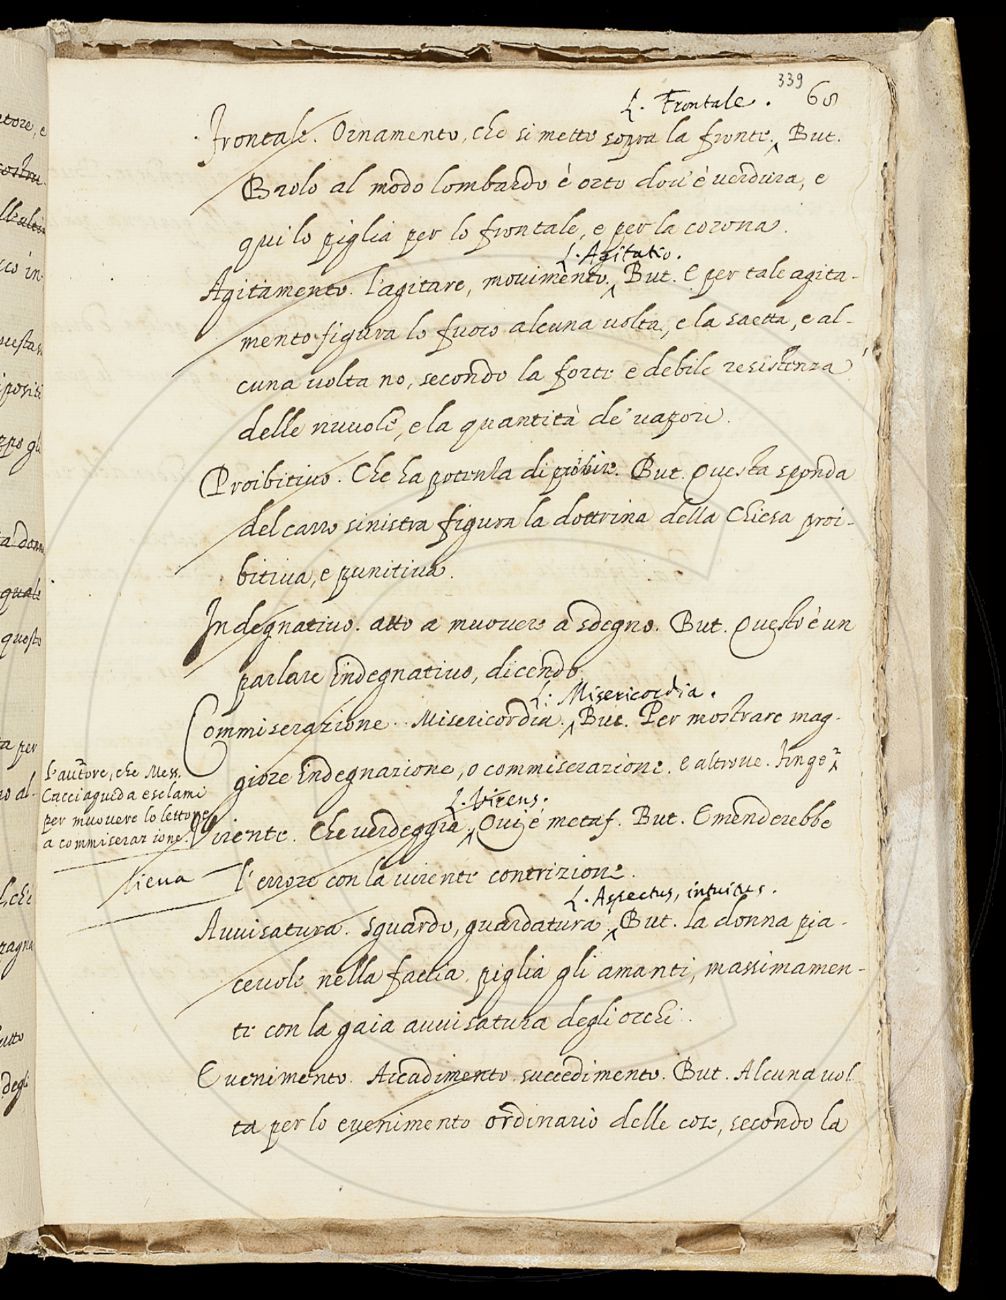 339 68
L. Frontale.
Frontale. Ornamento, che si mette sopra la fronte. But.
Brolo al modo lombardo è orto dov' è verdura, e
qui lo piglia per lo frontale, e per la corona.
L. Agitatio.
Agitamento. l'agitare, movimento. But. E per tale agita-
mento figura lo fuoco alcuna volta, e la saetta, e al-
cuna volta no, secondo la forte e debile resistenza
delle nuvole, e la quantità de' vapori.
Proibitivo. Che ha potenza di proibire. But. Questa sponda
del carro sinistra figura la dottrina della Chiesa proi-
bitiva, e punitiva.
Indegnativo. atto a muovere a sdegno. But. Questo è un
parlare indegnativo, dicendo
L. Misericordia.
Commiserazione. Misericordia. But. Per mostrare mag-
giore indegnazione, o commiserazione. e altrove. finge
l'autore, che Mess.
Cacciagueda esclami
per muovere lo lettore
a commiserazione.
L. Virens.
Viriente. Che verdeggia. Qui è metaf. But. Emenderebbe
l'errore con la viriente contrizione.
lieva
L. Aspectus, intuitus.
Avvisatura. Sguardo, guardatura. But. la donna pia-
cevole nella faccia piglia gli amanti, massimamen-
te con la gaia avvisatura degli occhi.
Evenimento. Accadimento, succedimento. But. Alcuna vol
ta per lo evenimento ordinario delle cose, secondo la